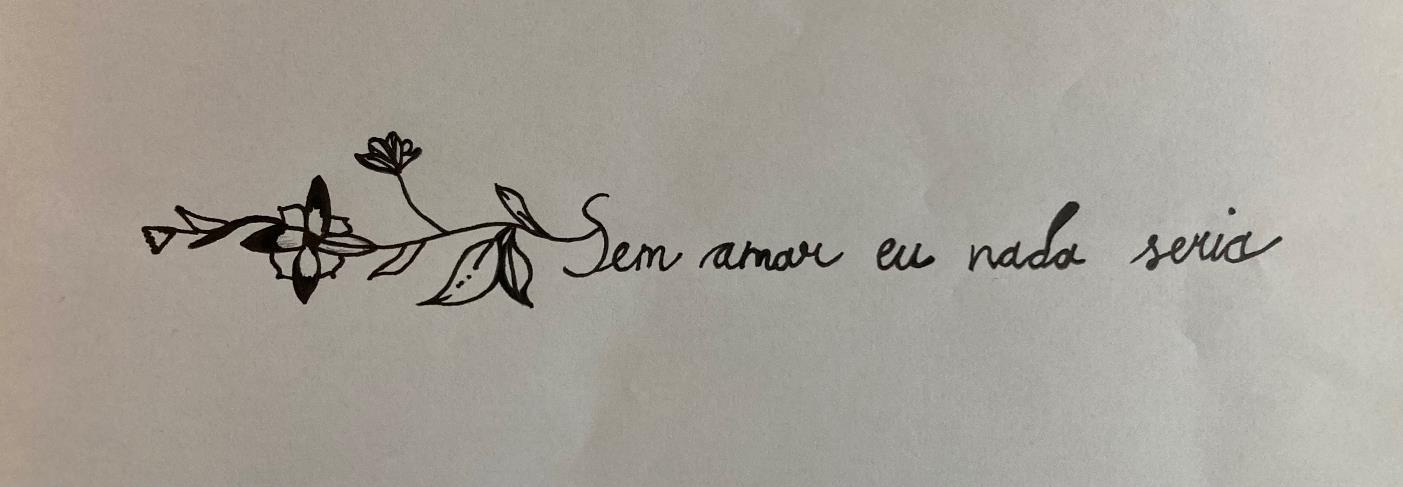 Sem amar eu nada seria